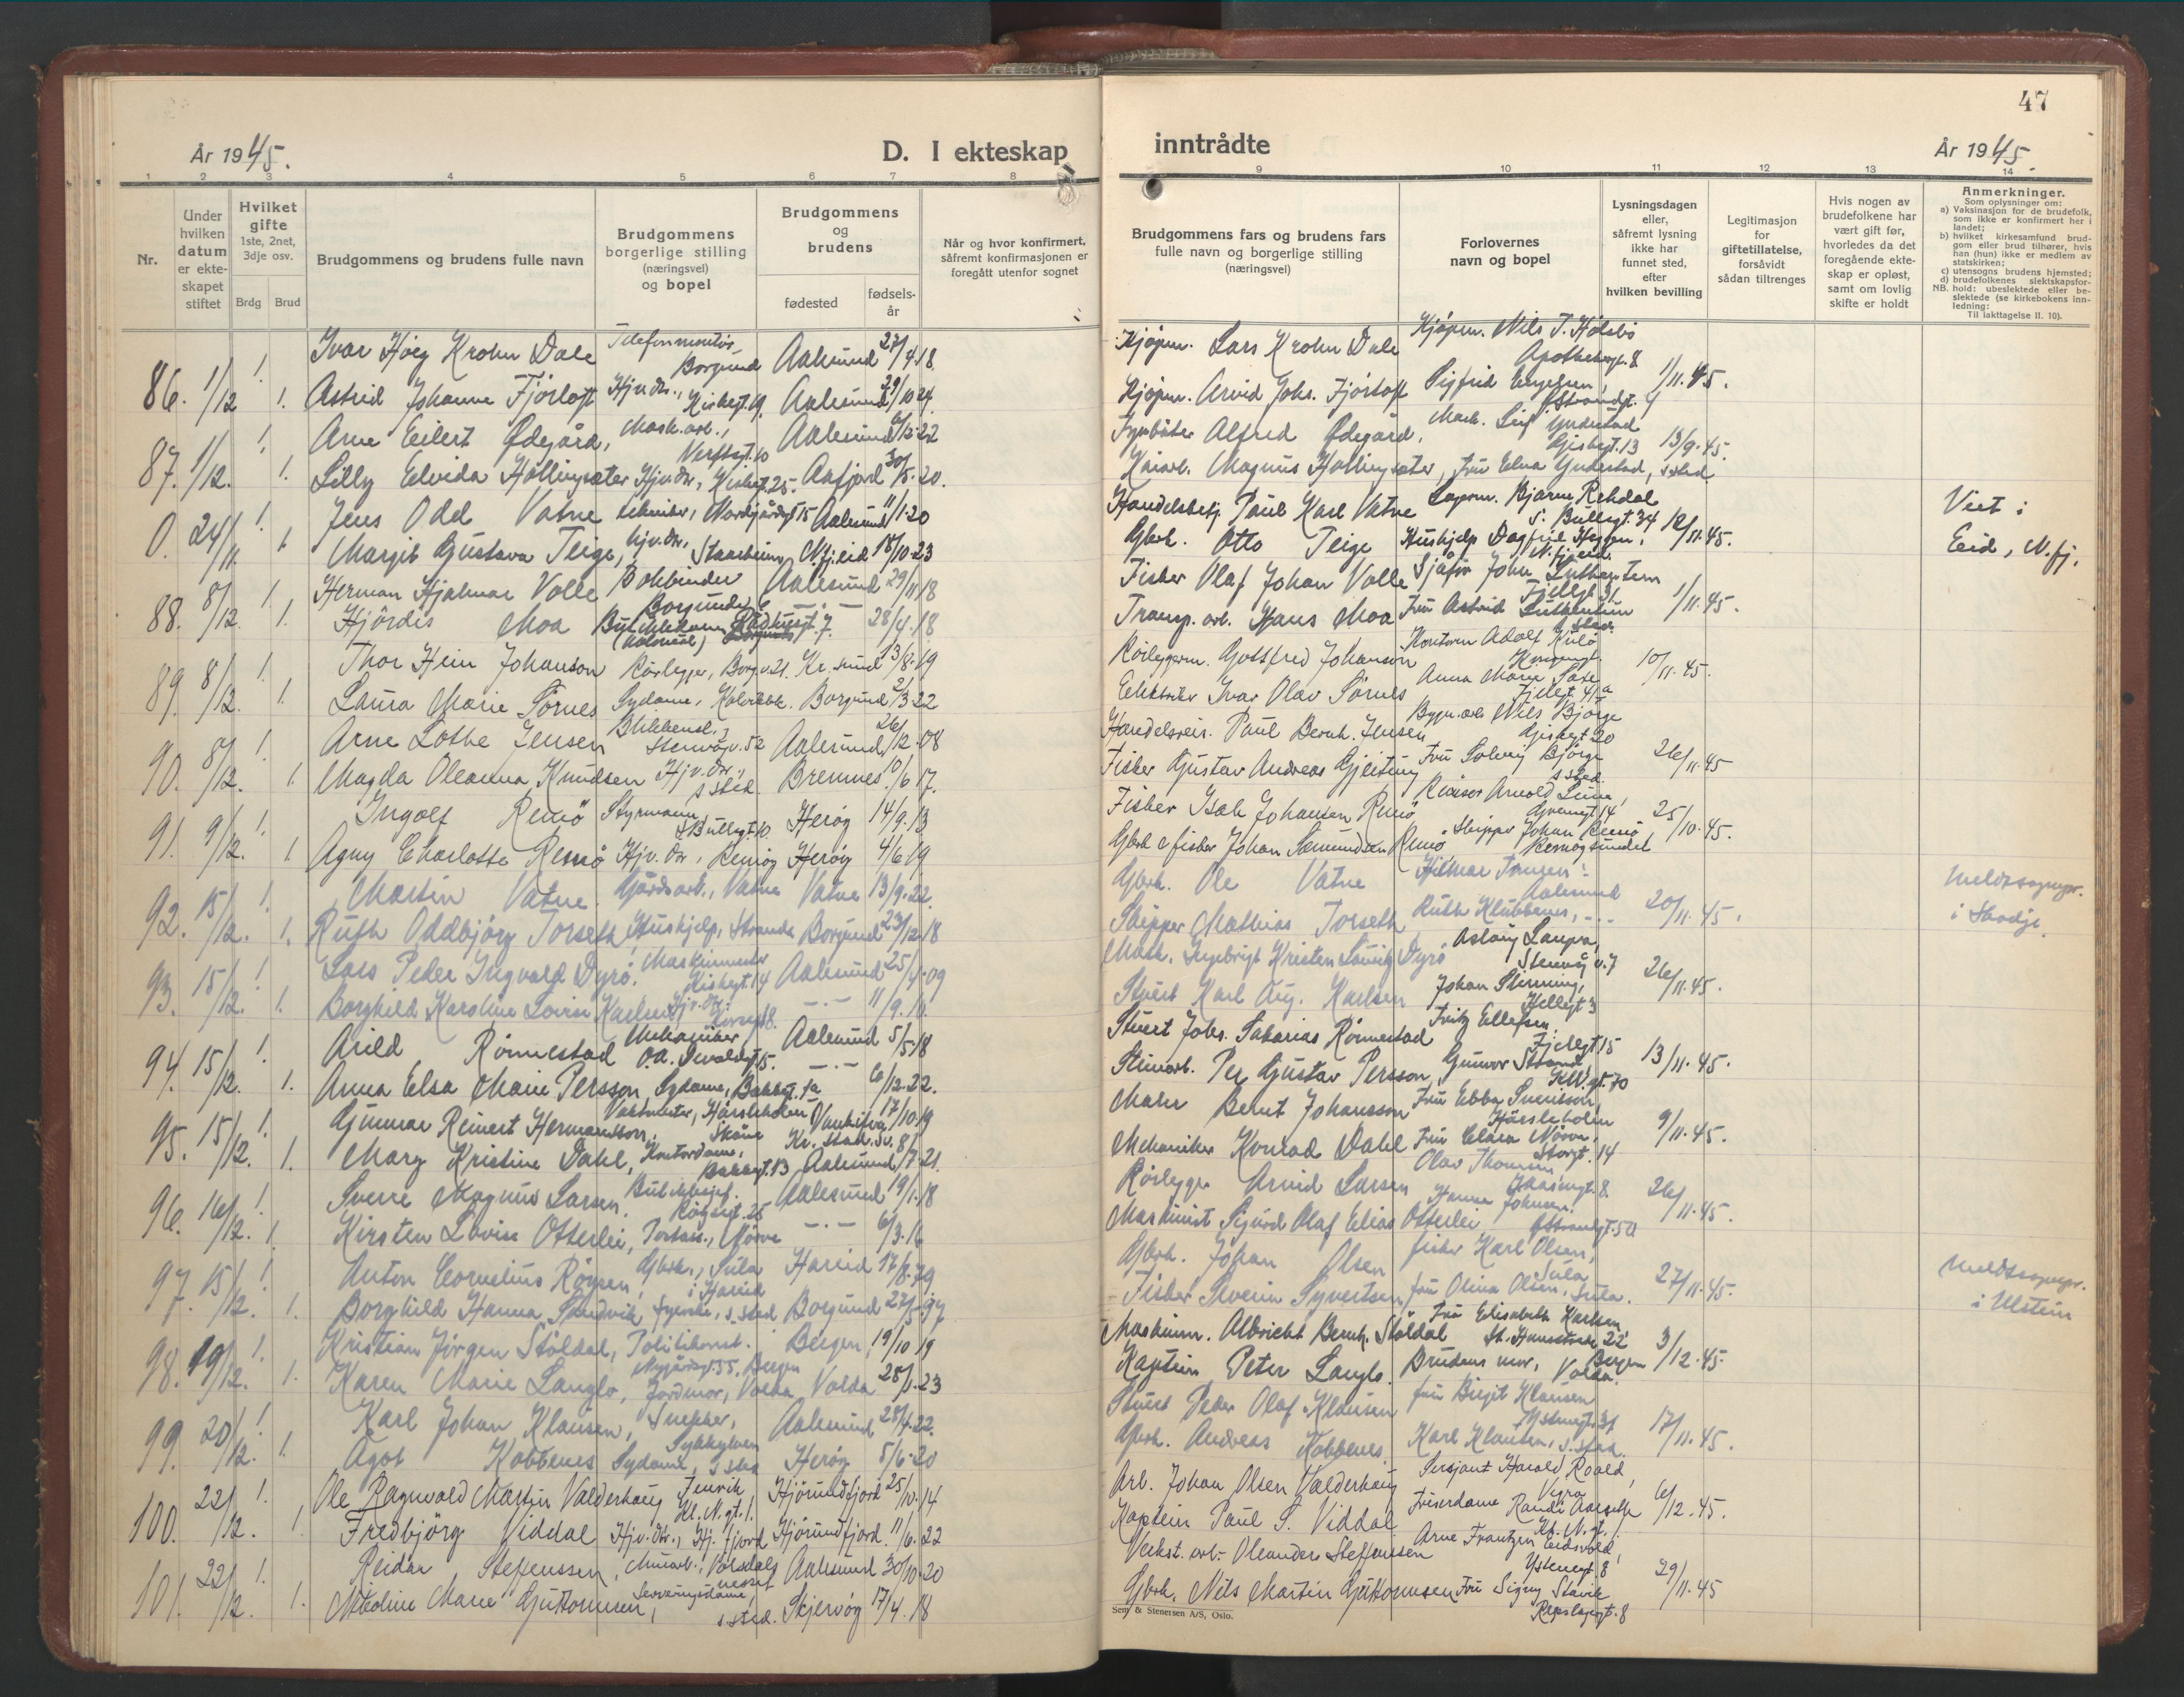 47
År 1945.
D. I ekteskap
inntrådte
År 1945.
1 2 3 4 5 6 7 8 9 10 11 12 13 14
Nr.
Under hvilken datum er ekteskapet stiftet
Hvilket gifte
1ste, 2net, 3dje osv.
Brdg Brud
Brudgommens og brudens fulle navn
Brudgommens borgerlige stilling (næringsvei) og bopel
Brudgommens og brudens
fødested
fødselsår
Når og hvor konfirmert, såfremt konfirmasjonen er foregått utenfor sognet
Brudgommens fars og brudens fars fulle navn og borgerlige stilling (næringsvei)
Forlovernes navn og bopel
Lysningsdagen eller, såfremt lysning ikke har funnet sted, efter hvilken bevilling
Legitimasjon for giftetillatelse, forsåvidt sådan tiltrenges
Hvis nogen av brudefolkene har vært gift før, hvorledes da det foregående ekteskap er opløst, samt om lovlig skifte er holdt
Anmerkninger.
Som oplysninger om:
a) Vaksinasjon for de brudefolk, som ikke er konfirmert her i landet;
b) hvilket kirkesamfund brudgom eller brud tilhører, hvis han (hun) ikke er medlem av statskirken;
c) utensogns brudens hjemsted;
d) brudefolkenes slektskapsforhold: ubeslektede eller beslektede (se kirkebokens innledning:
NB. Til iakttagelse II. 10).
86. 1/12 1. Ivar Høeg Krohn Dale Telefonmontør Borgund Aalesund 27/4.18 Kjøpm. Lars Krohn Dale Kjøpm. Nils T. Apothekergt. 8
1. Astrid Johanne Fjørtoft Hjv. dtr., Kirkegt. 19 Aalesund 29/10 24 Kjøpm. Arvid Johs. Fjørtoft Sigfrid Engelsen 1/11.45.
87. 1/12. 1. Arne Eilert Ødegård, Mask. arb., Verftsgt. 10 Aalesund 12.22 Fyrbøter Alfred Ødegård, Mask. Leif Gjisbegt. 13 13/9.45.
1. Lilly Elvida Hollingsæter Hjv. dtr., Kirkegt. 25. Aafjord 30/5.20. Magnus Hollingsæter, fru Elna s. sted
0. 24/11. 1. Jens Odd Vatne tekniker, 15 Aalesund 11/1.20 Handelsbetj. Paul Karl Vatne Lagerm. Bjarne Rekdal S. Bullsgt. 34 12/11.45. Viet i
1. Margit Gustava Teige, hjv. dtr., N.fj.eid 18/10.23 Gbrk. Otto Teige Hushjelp Dagfrid N.fj.eid. Eid, N.fj.
88. 8/12. 1. Herman Hjalmar Volle Bokbinder Borgund Aalesund 29/11 18 Fisker Olaf Johan Volle Sjåfør John 1/11.45.
1. Hjördis Moa Butikkdame (kolonial) 7. -.- 28/4.18 Transp. arb. Hans Moa Fru Astrid
89. 8/12. 1. Thor Hein Johanson Rørlegger, Borg.v. 21. Kr.sund 13/8.19 Rørleggerm. Gottfred Johanson Kontorm. Adolf 10/11.45.
1. Laura Marie Sørnes Sydame, Borgund 2/3 22 Elektriker Ivar Olav Sørnes Anna Marie Fjellgt. 41a
90. 8/12. 1. Arne Lothe Jensen Stenvågv. 52 Aalesund 26/12.08 Handelsreis. Paul Bernh. Jensen Bygn.arb. Nils Bjørge 20 26/11.45
1. Magda Oleanna Knudsen Hjv. dtr., s. sted. Bremnes 10/6 17. Fisker Gustav Andreas Gjeitung Fru Solveig Bjørge s. sted.
91. 9/12. 1. Ingolf Remö Styrmann, S. Bullsgt. 10 Herøy 14/9.13 Fisker Isak Johansen Remö Arnold 14 25/10.45.
1. Agny Charlotte Remö Hjv. dtr., Remøy Herøy 4/6 19 Gbrk & fisker Johan Remö Skipper Johan Remö Remøysundet
92. 15/12. 1. Martin Vatne. Gårdsarb., Vatne Vatne 13/9.22. Gbrk. Ole Vatne Hilmar Aalesund 20/11.45.
1. Ruth Oddbjörg Torseth, Hushjelp, Stranda Borgund 23/12.18 Skipper Mathias Torseth Ruth Klubbenes, -.- i Skodje
93. 15/12. 1. Lars Peder Ingvald Dyrö. Maskinmester Kirkegt. 14 Aalesund 25/4.09 Mask. Ingebrigt Kristen Dyrö Aslaug Stenvåg v. 7 26/11.45.
1. Borghild Karoline Lovise Karlsen Hjv. dtr. -.- 11/9. Stuert Karl Aug. Karlsen Johan
94. 15/12. 1. Arild Rönnestad Mekaniker 15. Aalesund 5/5.18 Stuert Johs. Sakarias Rönnestad Fritz Ellefsen, Fjellgt. 15 13/11.45.
1. Anna Elsa Marie Persson, Sydame, Bakkegt. 1a -.- 6/12.22. Stenarb. Per Gustav Persson, Gunvor K.W.gt. 70
95. 15/12. 1. Gunnar Reinert Hermansson, Vaktmester, Hässleholm Skåne Kr.stad. Sv. 17/10 19 Maler Bernt Johansson Fru Ebba Svensson, Hässleholm 9/11.45.
1. Mary Kristine Dahl, Kontordame, Bakkegt. 13 Aalesund 8/7.21. Mekaniker Konrad Dahl Fru Clara Nörve, Storgt. 14
96. 16/12. 1. Sverre Magnus Larsen, Butikksjef. Røysegt. 25 Aalesund 19/1.18 Rørlegger Arvid Larsen Olav Thomsen 8. 26/11.45.
1. Kirsten Lovise Otterlei, Nörve -.- 6/3.16 Maskinist Sigurd Olaf Elias Otterlei Hanna Johnsen
97. 15/12. 1. Anton Cornelius Röysen, Gbrk., Sula i Hareid Hareid 17/8.79 Gbrk. Johan Olsen fisker Karl Olsen, Sula 27/11.45.
1. Borghild Hanna Sandvik s. sted Borgund 27/5.97 Fisker Severin Syvertsen fru Olina Olsen, Sula. i Ulstein
98. 19/12. 1. Kristian Jörgen Stöldal, Politikonst. Nygårdsgt. 55, Bergen Bergen, 19/10 19 Maskinm. Albricht Bernh. Stöldal Fru Elisabeth Karlsen 22 Bergen 3/12.45.
1. Karen Marie Langlo, Jordmor, Volda Volda 28/1.23 Kaptein Peter Langlo. Brudens mor, Volda.
99. 20/12. 1. Karl Johan Klausen, Snekker, Sykkylven Aalesund 28/4.22. Stuert Peder Olaf Klausen fru Birgit Klausen 17/11.45.
1. Ågot Kobbenes Sydame, s. sted Herøy 5/6.20 Gbrk. Andreas Kobbenes. Karl Klausen, s. sted.
100. 22/12. 1. Ole Ragnvald Martin Valderhaug Kl. N. gt. 1. Hjörundfjord 25/10.14 Arb. Johan Olsen Valderhaug Sersjant Harald Roald, Vigra 6/12.45.
1. Fredbjörg Viddal Hjv. dtr., Hj. fjord Hjörundfjord. 11/6.22 Kaptein Paul S. Viddal Friserdame Randi Aarseth Kl. N. gt. 1.
101. 22/12. 1. Reidar Steffensen, Aalesund 30/10.20 Verkst. arb. Oleander Steffensen Arne Frantzen 8 29/11.45
1. Nikoline Marie Guttormsen, Serveringsdame, s. sted. Skjervøy 17/4.18 Gbrk. Nils Martin Guttormsen Fru Signy Stavik Repslagergt. 8
Sem & Stenersen A/S, Oslo.